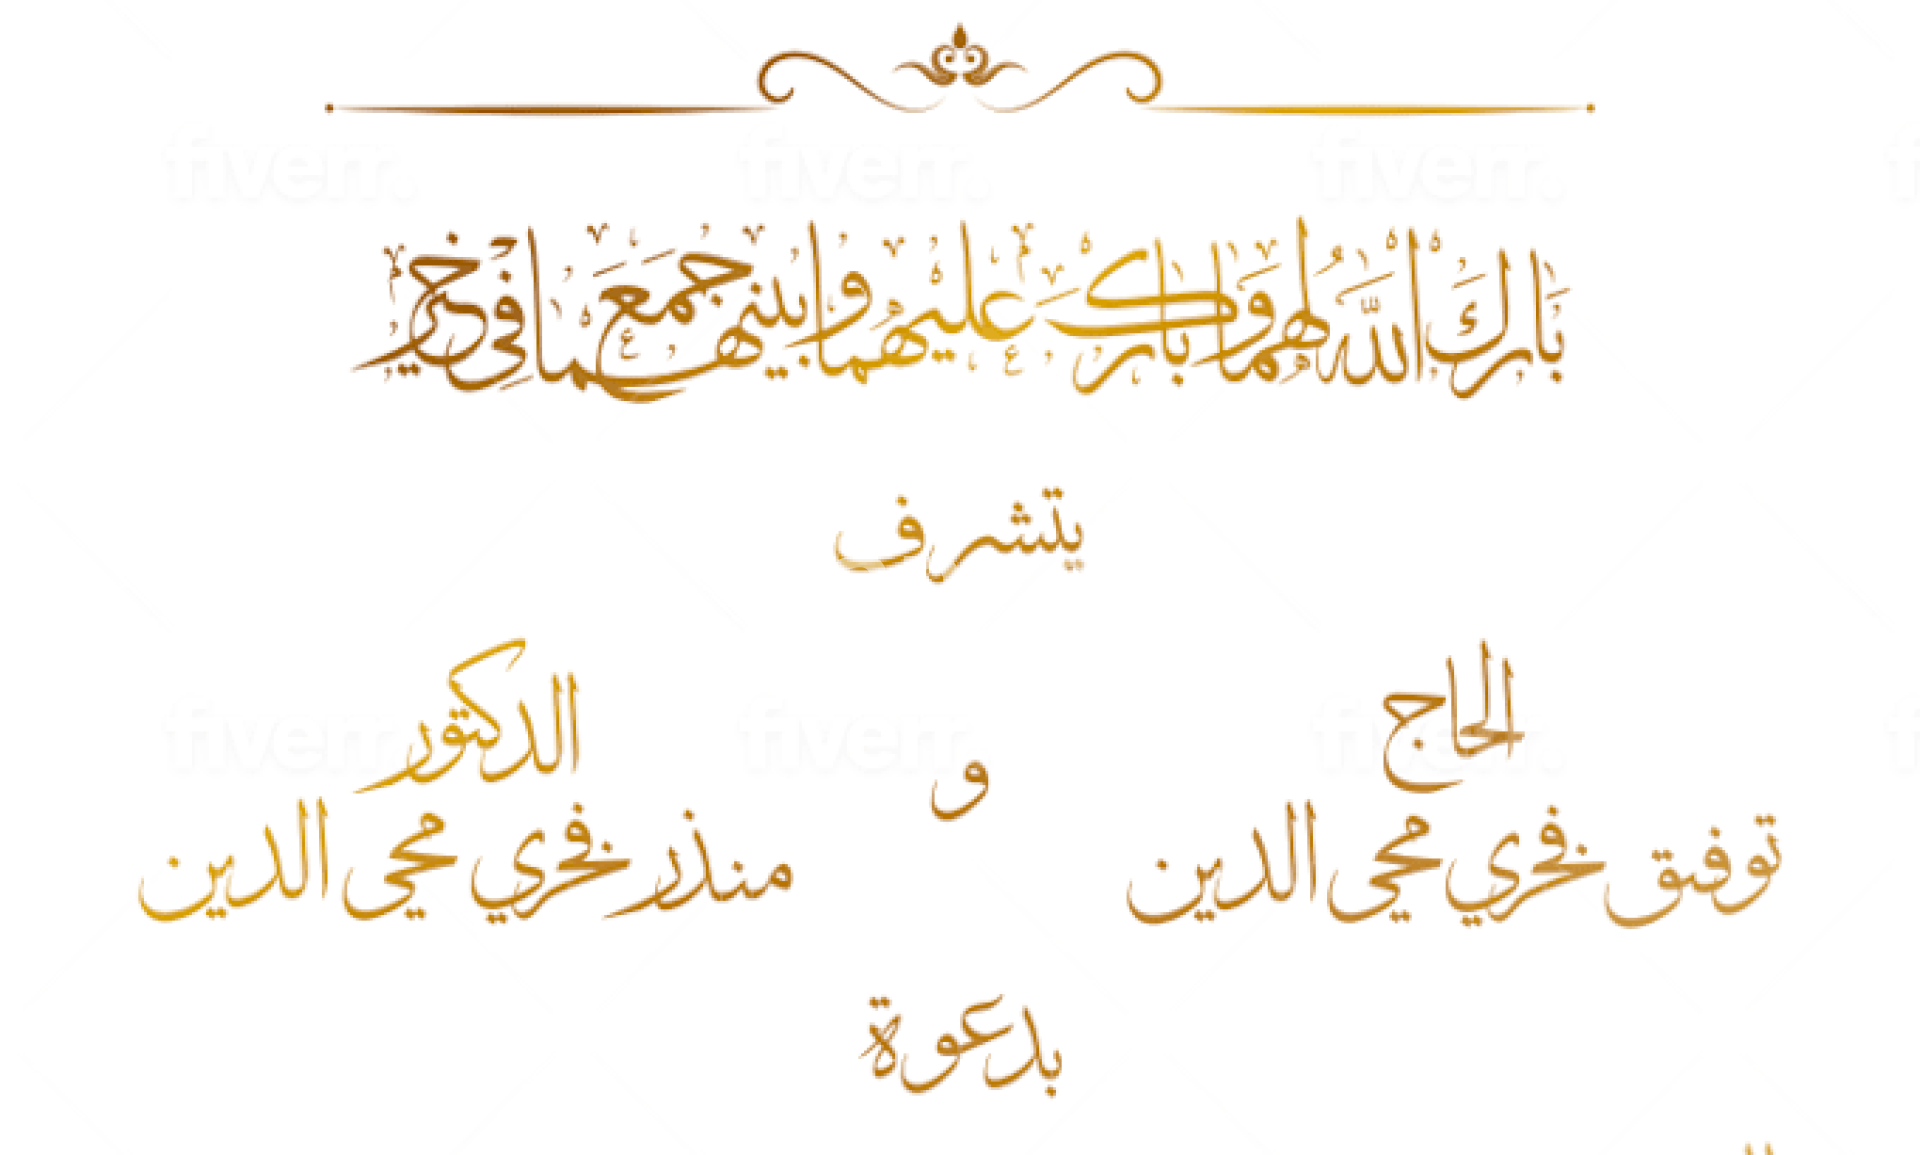 بارك الله لهما وبارك عليهما وجمع بينهما في خير
يتشرف
الحاج
توفيق فخري محي الدين
و
الدكتور
منذر فخري محي الدين
بدعوة
fiverr. fiverr. fiverr.
fiverr. fiverr. fiverr.